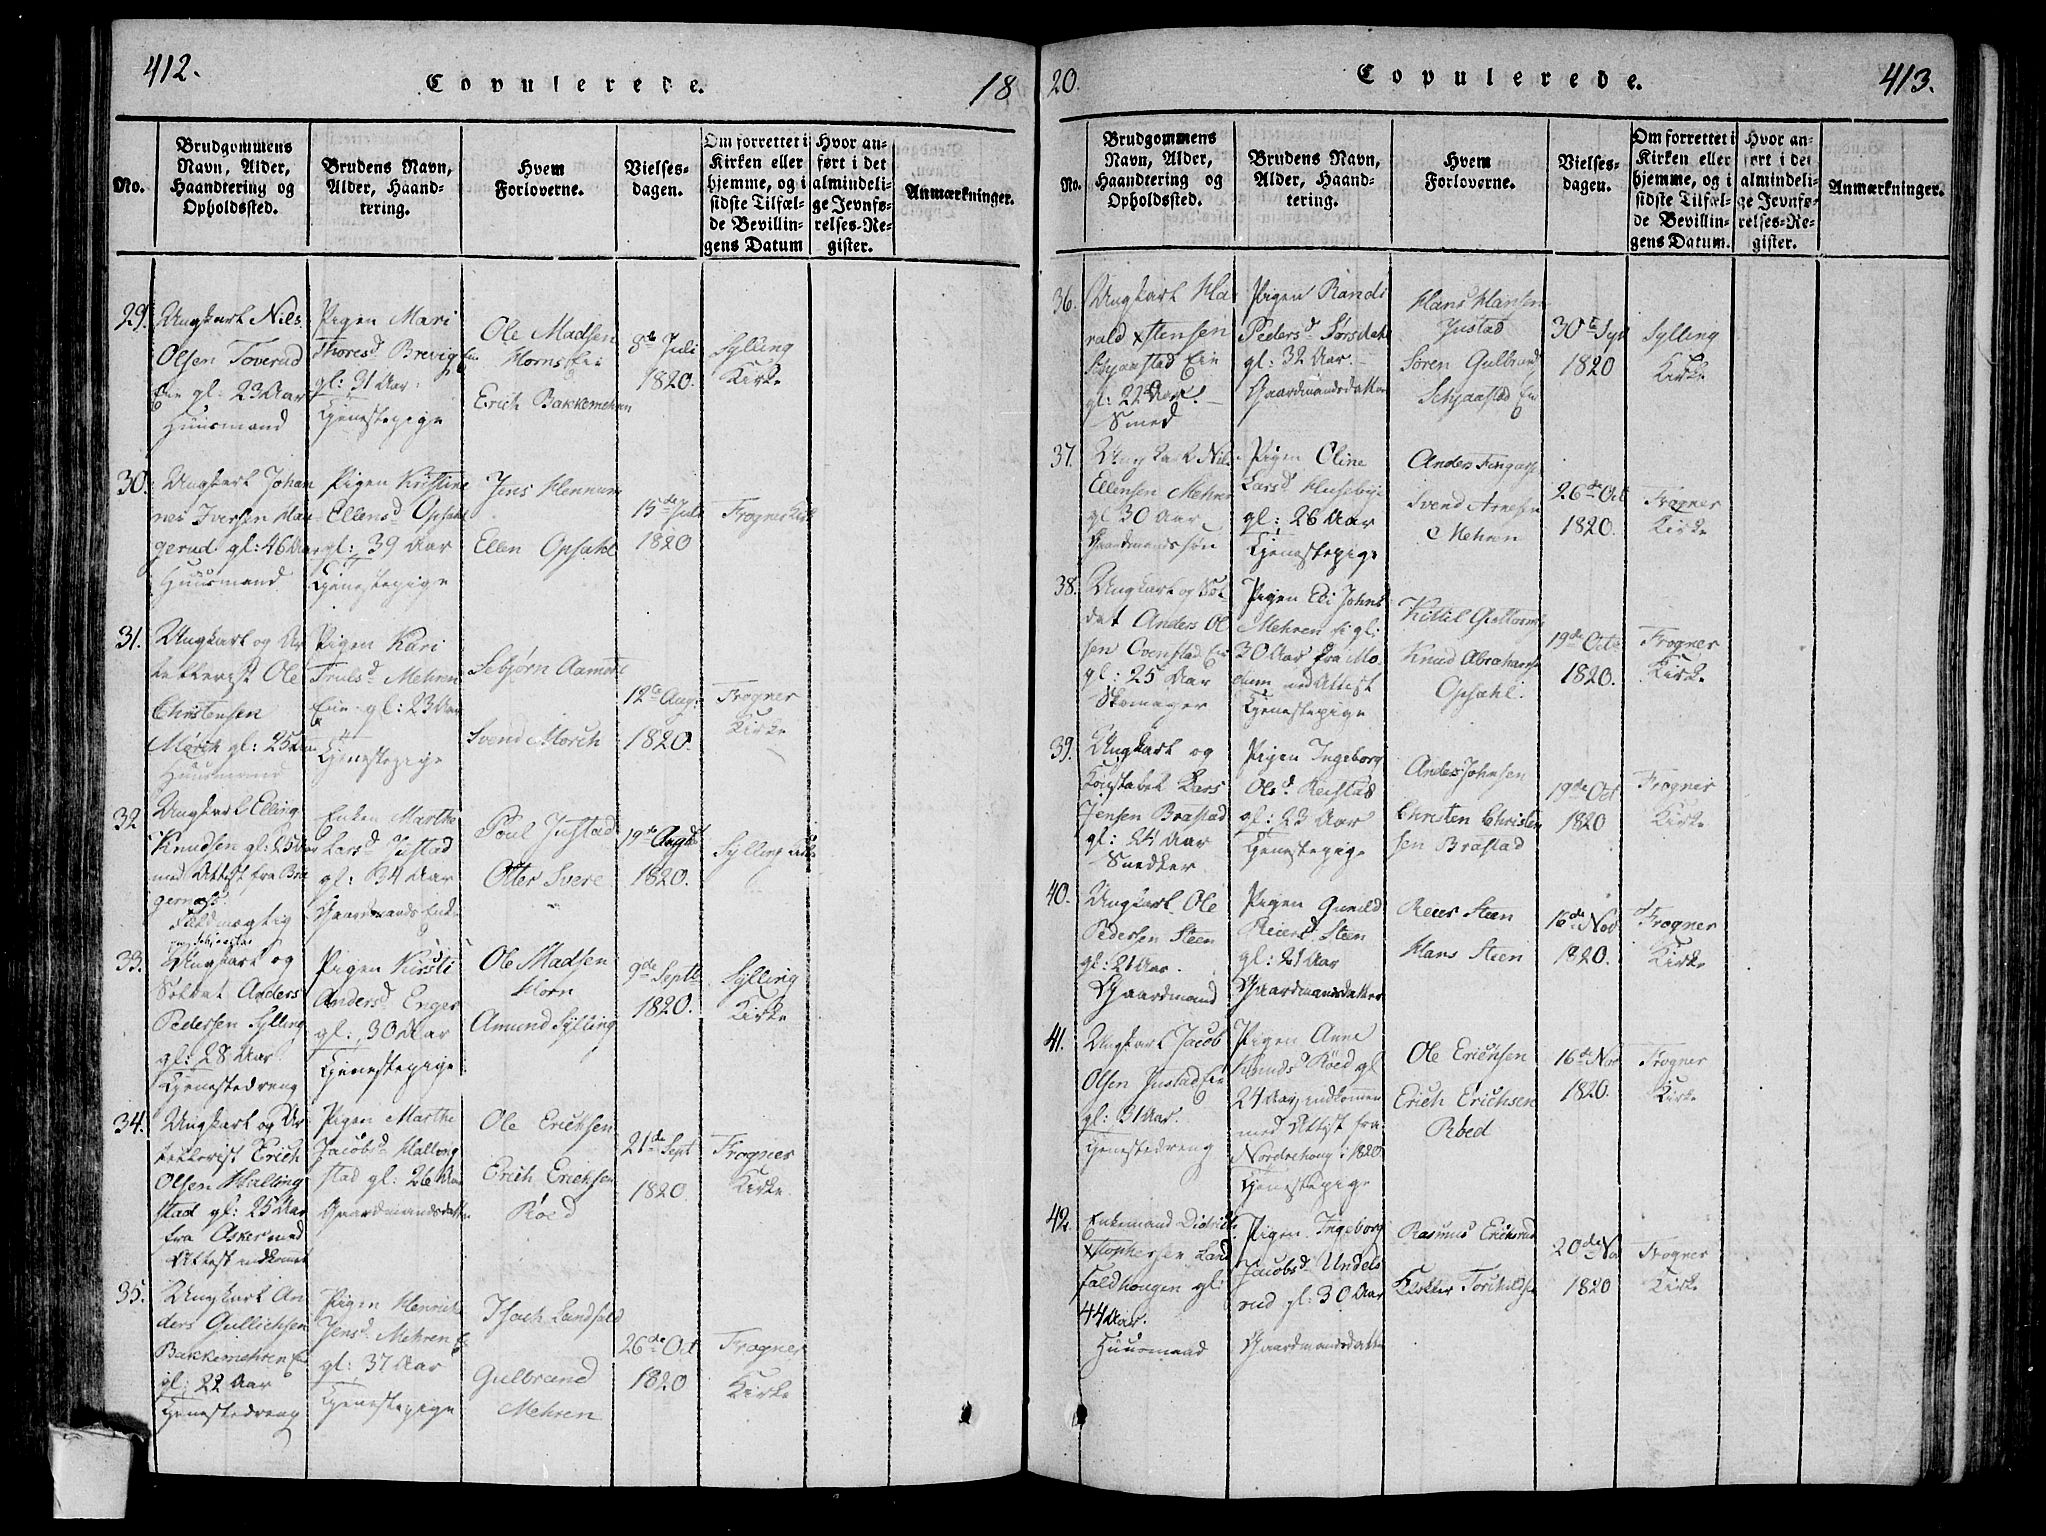 412.
Copulerede.
18
No.
Brudgommens
Navn, Alder,
Haandtering og
Opholdssted.
Brudens Navn,
Alder, Haand-
tering.
Hvem
Forloverne.
Vielses-
dagen.
Om forrettet i
Kirken eller
hjemme, og i
sidste Tilfæl-
de Bevillin-
gens Datum
Hvor an-
ført i det
almindeli-
ge Jevnfø-
relses-Re-
gister.
Anmærkninger.
29.
Ungkarl Nils
Olsen Toverud
Eie gl: 23 Aar
Huusmand
Pigen Mari
Thoresd. Brevig Eie
gl: 31 Aar
Tjenestepige
Ole Madsen
Horns Eie
Erich Bakkemehren
8de Juli
1820.
Sylling
Kirke
30.
Ungkarl Johan
nes Iversen Hau
gerud gl: 46 Aar
Huusmand
Pigen Kirstine
Ellensd. Opsahl
gl: 39 Aar
Tjenestepige
Jens Hennum
Ellen Opsahl
15de Juli
1820
Frogner Kirke
31.
Ungkarl og Ar
tellerist Ole
Christensen
Mörch gl: 25 Aar
Huusmand
Pigen Kari
Trulsd. Mehren
Eie gl: 23 Aar
Tjenestepige
Sebjörn Aamodt
Svend Morch
12te Aug.
1820.
Frogner
Kirke
32
Ungkarl Elling
Knudsen gl: 25 Aar
med Attest fra Bra
gernæs
Fuldmægtig
Enken Marthe
Larsd. Justad
gl: 34 Aar
Gaardmands Enke
Poul Justad
Otter Svere
19de Augt
1820.
Sylling Kirke
33.
Ungkarl og
Soldat Anders
Pedersen Sylling
gl: 28 Aar
Tjenestedreng
Pigen Kirsti
Andersd. Enger
gl: 30 Aar
Tjenestepige
Ole Madsen
Horn
Amund Sylling
9de Septb
1820.
Sylling
Kirke
34.
Ungkarl og Ar
tellerist Erich
Olsen Halling
stad gl: 25 Aar
fra Asker med
Attest indkomet
Pigen Marthe
Jacobsd. Halling
stad gl: 26 Aar
Gaardmandsdatter
Ole Erichsen
Erich Erichsen
Röed
21de Sept
1820.
Frogner
Kirke
35.
Ungkarl An
ders Gullichsen
Bakkemehren Eie
gl: 22 Aar
Tjenestedreng
Pigen Henrich
Jensd. Mehren Eie
gl: 37 Aar
Tjenestepige
Isach Landfald
Gulbrand
Mehren
26de Oct
1820
Frogner
Kirke
20.
Copulerede.
413.
No.
Brudgommens
Navn, Alder,
Haandtering og
Opholdssted.
Brudens Navn,
Alder, Haand-
tering.
Hvem
Forloverne.
Vielses-
dagen.
Om forrettet i
Kirken eller
hjemme, og i
sidste Tilfæl-
de Bevillin-
gens Datum.
Hvor an-
ført i det
almindeli-
ge Jevnfø-
relses-Re-
gister.
Anmærkninger.
36.
Ungkarl Ha
rald Stensen
Schjanstad Eie
gl: 22 Aar
Smed
Pigen Randi
Pedersd. Sørsdahl
gl: 32 Aar
Gaardmandsdatter
Hans Hansen
Justad
Soren Gulbrands
Schjaastad Eie
30te Sept
1820
Sylling
Kirke
37.
Ungkarl Nils
Ellensen Mehren
gl 30 Aar
Gaardmandssøn
Pigen Oline
Larsd. Husebye
gl: 26 Aar
Tjenestepige
Svend Arnesen
Mehren
26de Oct
1820.
Frogner
Kirke
38.
Ungkarl og Sol
dat Anders Ol
sen Ovenstad Eie
gl: 25 Aar
Skomager
Pigen Edi Johns
Mehren Ei gl:
30 Aar fra Mo
dum med Attest
Tjenestepige
Kittil Guttorms
Knud Abrahams
Opsahl.
19de Octb
1820.
Frogner
Kirke
39.
Ungkarl og
Konstabel Lars
Jensen Brastad
gl: 24 Aar
Snedker
Pigen Ingeborg
Olesd. Reistad
gl: 23 Aar
Tjenestepige
Anders Johnsen
Christen Christen
sen Brastad
19de Oct
1820
Frogner
Kirke
40.
Ungkarl Ole
Pedersen Steen
gl: 21 Aar.
Gaardmand
Pigen Gunild
Reiersd. Steen
gl: 21 Aar
Gaardmandsdatter
Reier Steen
Hans Steen
16de Nov
1820.
Frogner
Kirke
41.
Ungkarl Jacob
Olsen Justad Eie
gl: 31 Aar.
Tjenestedreng
Pigen Anne
Knudsd. Röed gl
24 Aar, indkommen
med Attest fra
Nordrehoug i 1820
Tjenestepige
Ole Erichsen
Erich Erichsen
Röed
16de Nov
1820.
Frogner
Kirke
42.
Enkemand Didrich
Xstophersen Land
faldhougen gl:
44 Aar.
Huusmand
Pigen Ingeborg
Jacobsd. Undels
rud gl: 30 Aar
Gaardmandsdatter
Rasmus Eriksrud
Torchildsen
20de Nov
1820
Frogner
Kirke